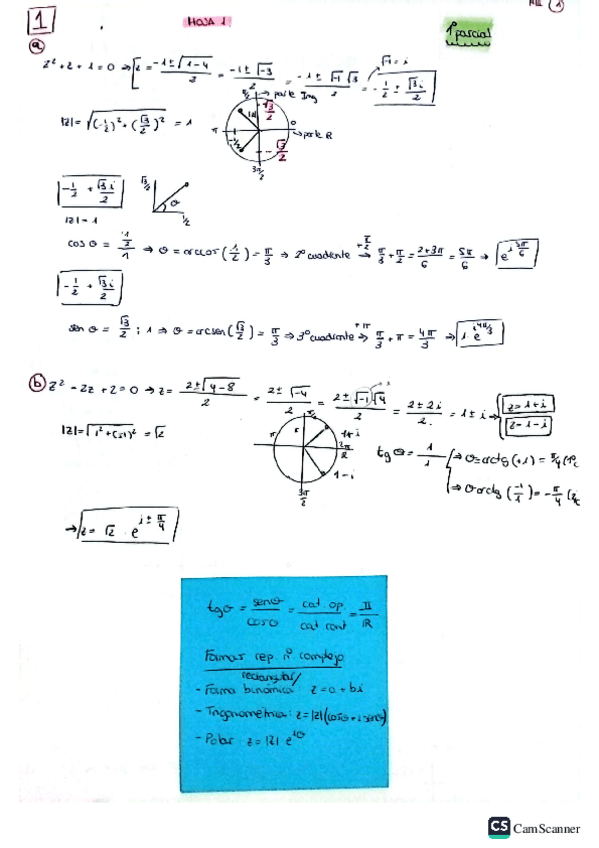 1
HOJA 1
1º parcial
a
z² + z + 1 = 0 ⇒ z = (-1 ± √(1-4))/2 = (-1 ± √-3)/2 = (-1 ± √-1 √3)/2 = -1/2 ± √3i/2
√-1 = i
π/2 → parte Img
|z| = √((-1/2)² + (√3/2)²) = 1
√3/2
π
0
→ parte R
-1/2
-√3/2
3π/2
-1/2 + √3i/2
√3/2
θ
1/2
|z| = 1
cos θ = (1/2)/1 ⇒ θ = arccos(1/2) = π/3 ⇒ 2º cuadrante +π/2→ π/3 + π/2 = (2+3π)/6 = 5π/6 ⇒ e^(i 5π/6)
-1/2 + √3i/2
sen θ = √3/2 ; 1 ⇒ θ = arcsen(√3/2) = π/3 ⇒ 3º cuadrante +π→ π/3 + π = 4π/3 ⇒ 1 e^(i4π/3)
b
z² - 2z + 2 = 0 ⇒ z = (2 ± √(4-8))/2 = (2 ± √-4)/2 = (2 ± √-1 √4)/2 = (2 ± 2i)/2 = 1 ± i
z = 1 + i
z = 1 - i
|z| = √(1² + (±1)²) = √2
π/2
1+i
π
2π
R
1-i
3π/2
tg θ = 1/1 ⇒ θ = arctg(+1) = π/4
⇒ θ arctg(-1/1) = -π/4
⇒ z = √2 · e^(i ± π/4)
tg θ = sen θ/cos θ = cat. op/cat cont = II/R
Formas rep. nº complejo
rectangular/
- Forma binómica: z = a + bi
- Trigonométrica: z = |z|(cosθ + i senθ)
- Polar: z = |z| e^(iθ)
CS CamScanner